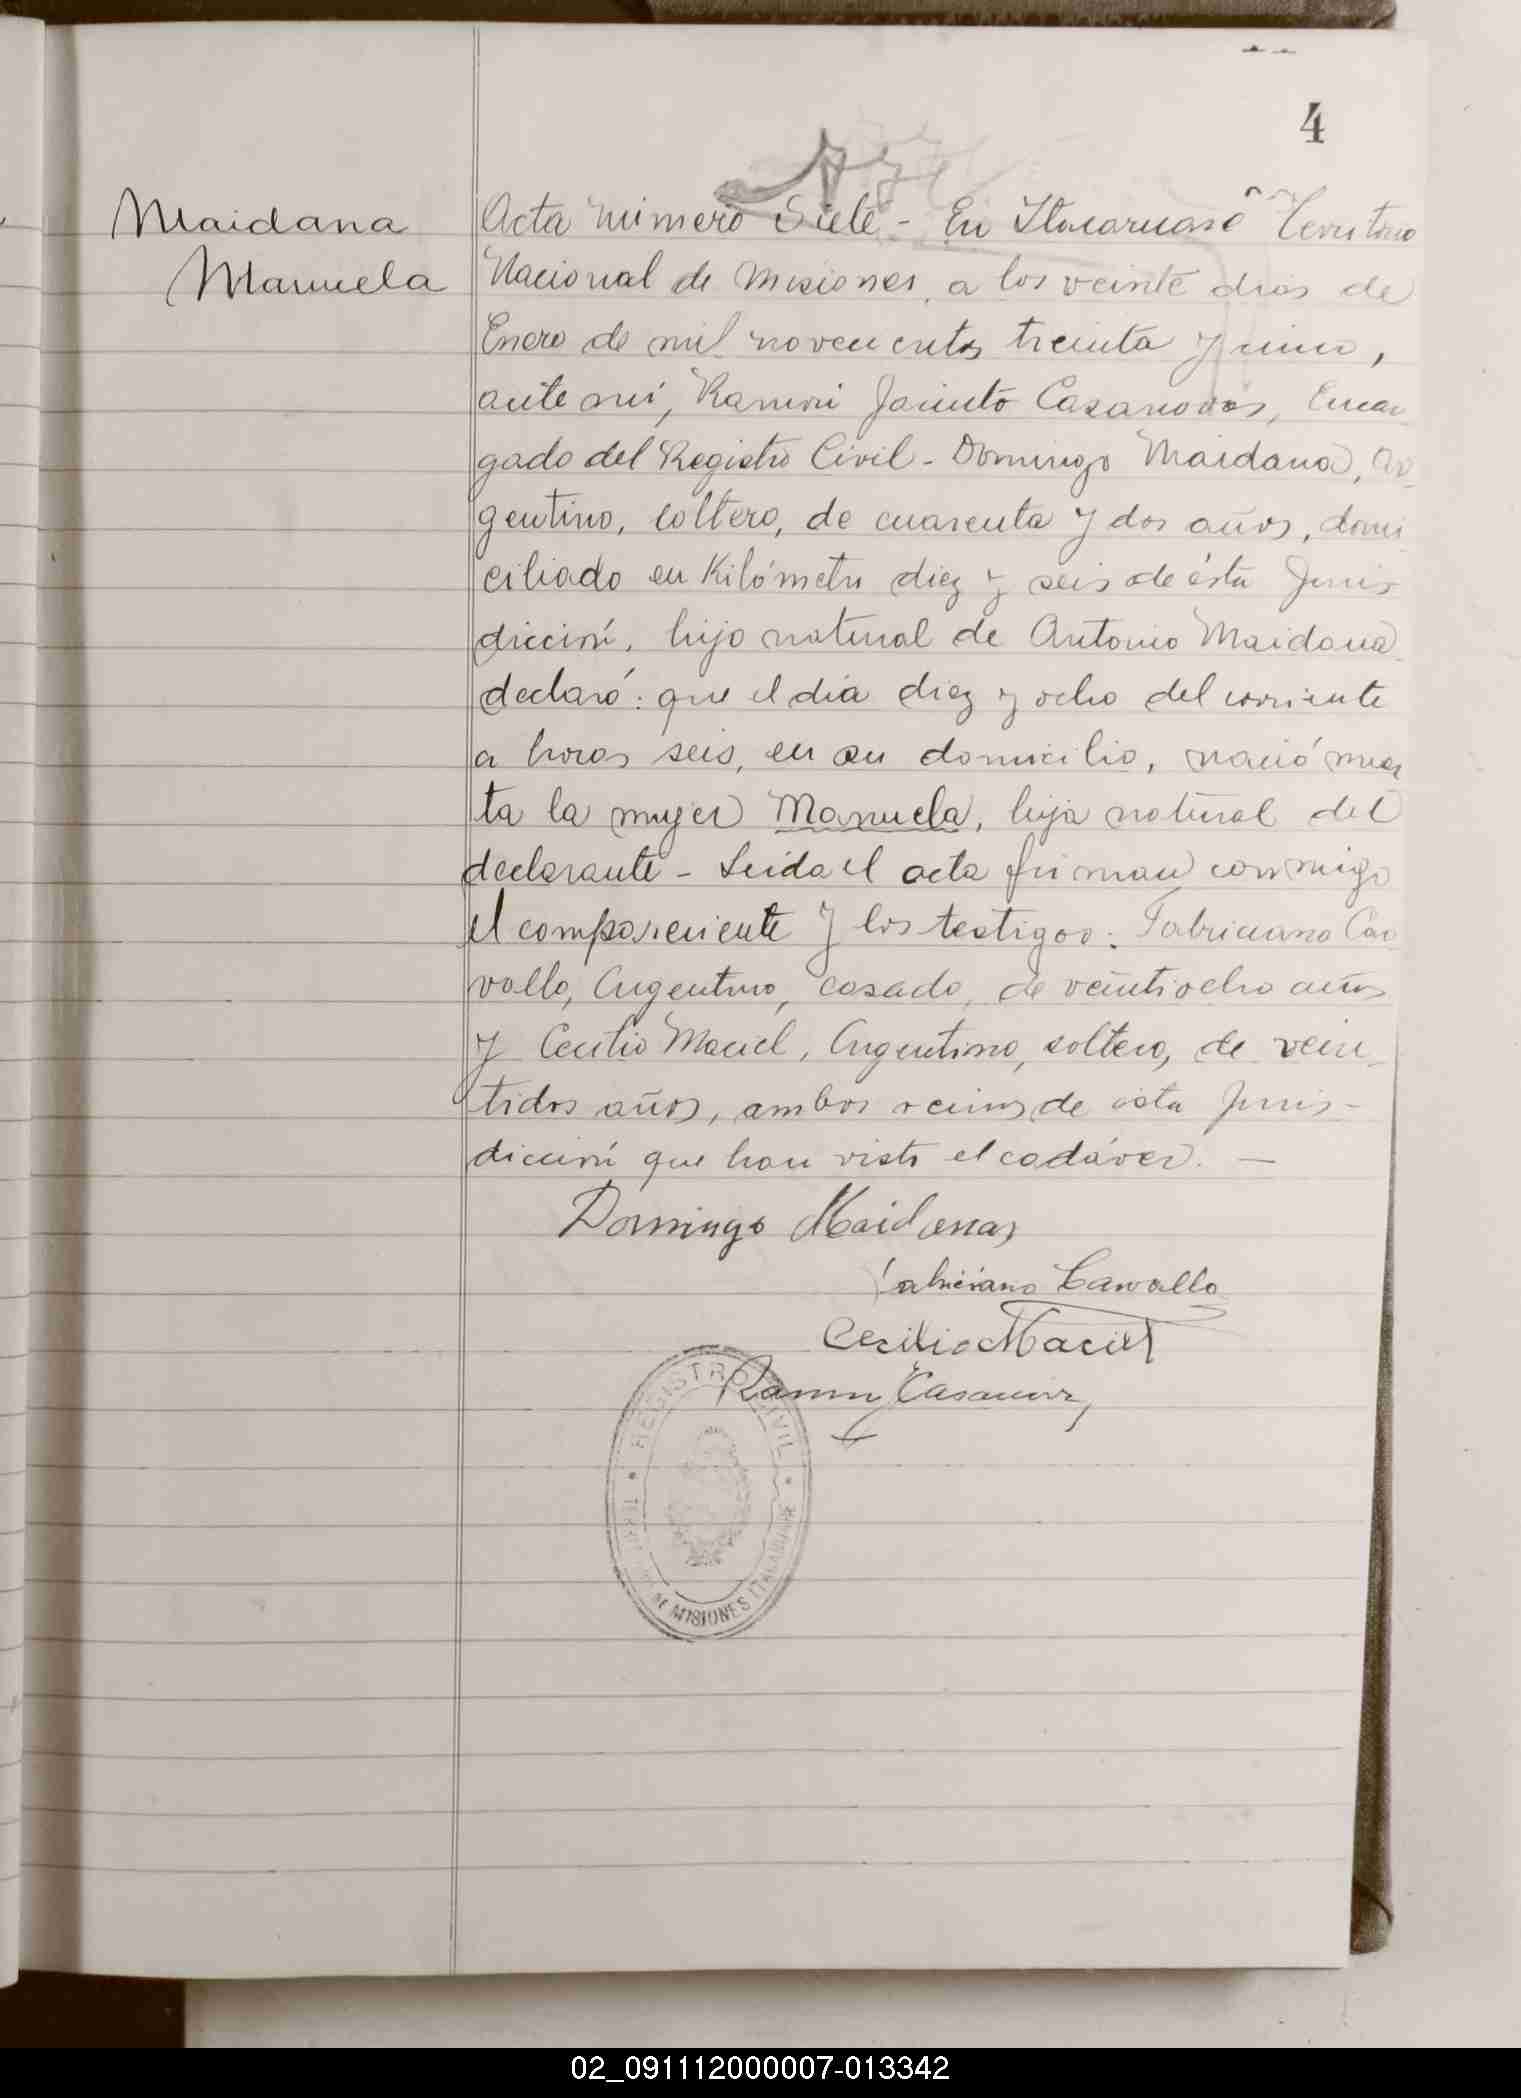 4
Maidana
Manuela
Acta número Siete - En Itacaruaré Territorio
Nacional de Misiones, a los veinte dias de
Enero de mil novecientos treinta y uno,
ante mi, Ramón Jacinto Casanovas, Encar
gado del Registro Civil - Domingo Maidana, Ar
gentino, soltero, de cuarenta y dos años, domi
ciliado en Kilómetro diez y seis de ésta Juris
dicción, hijo natural de Antonio Maidana
declaró: que el día diez y ocho del corriente
a horas seis, en su domicilio, nació muer
ta la mujer Manuela, hija natural del
declarante - Leida el acta firman conmigo
el compareciente y los testigos: Fabriciano Car
vallo, Argentino, casado, de veintiocho años
y Cecilio Maciel, Argentino, soltero, de vein
tidos años, ambos vecinos de ésta Juris-
dicción que han visto el cadáver. —
Domingo Maidanas
Fabriciano Carvallo
Cecilio Maciel
Ramon J Casanovas
REGISTRO CIVIL
TERRITORIO DE MISIONES ITACARUARE
02_091112000007-013342